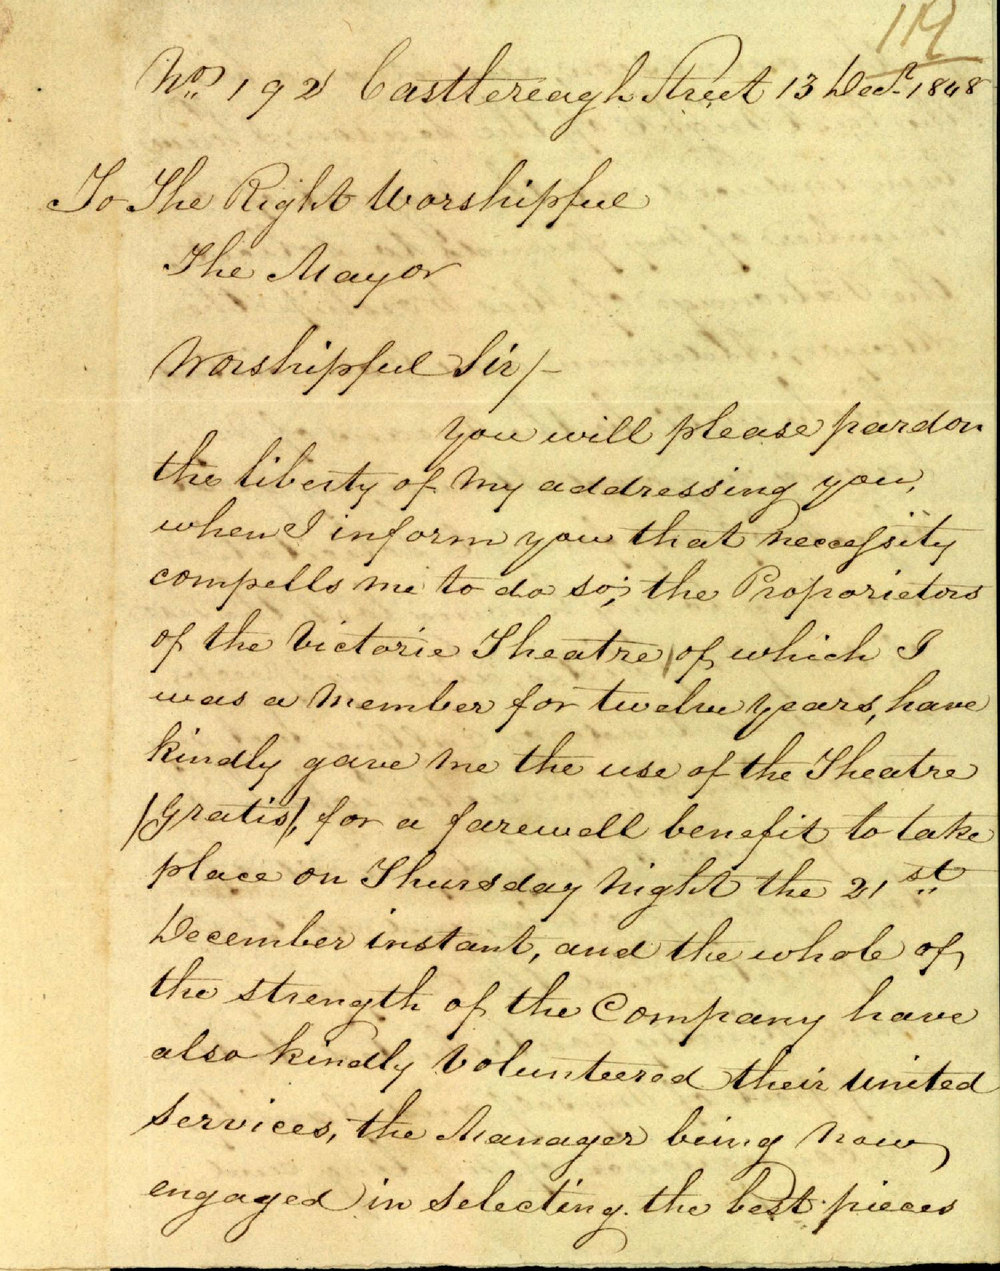 119
No. 192 Castlereagh Street 13 Decr. 1848
To The Right Worshipful
The Mayor
Worshipful Sir/-
You will please pardon
the liberty of my addressing you,
when I inform you that necessity
compells me to do so; the Proporietors
of the Victorie Theatre, of which I
was a member for twelve years, have
kindly gave me the use of the Theatre
/Gratis/, for a farewell benefit to take
place on Thursday night the 21st
December instant, and the whole of
the strength of the Company have
also kindly Volunteered their united
services, the Manager being now
engaged in selecting the best pieces